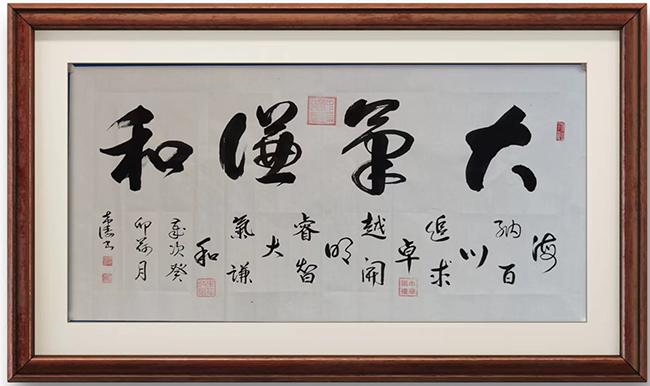 大氣謙和
海
納百
川
追求
卓
越開
明
睿智
大
氣謙
和
歲次癸
卯月